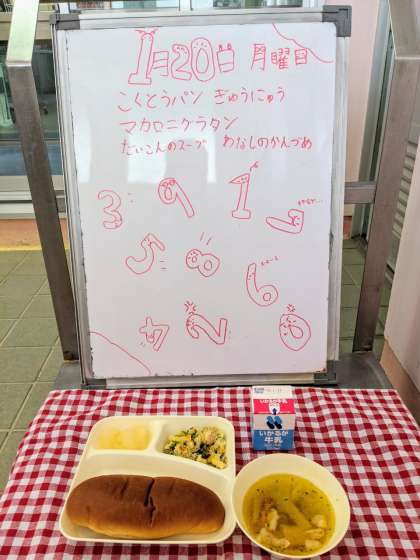 1月20日 月曜日
こくとうパン ぎゅうにゅう
マカロニグラタン
だいこんのスープ わなしのかんづめ
3 9 1 7
5 8 6
4 2 0
いかるが
牛乳